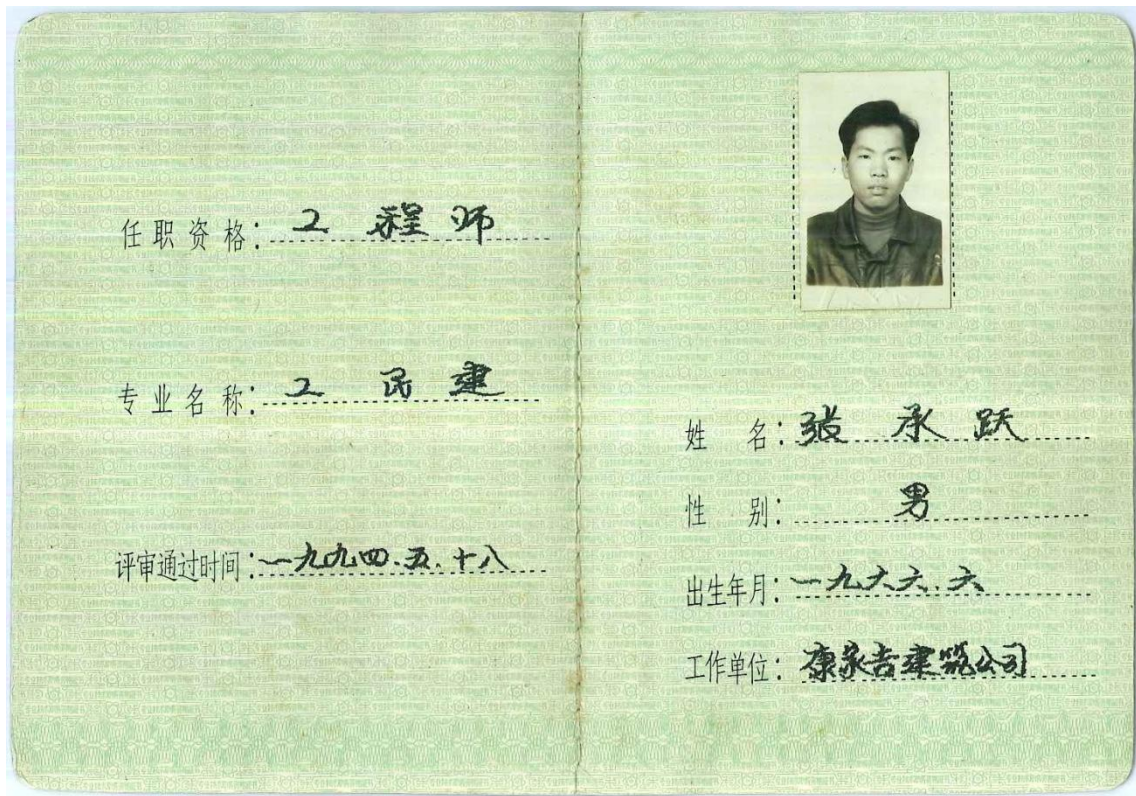 任职资格：工程师
专业名称：工民建
评审通过时间：一九九四.五.十八
姓 名：张承跃
性 别：男
出生年月：一九六六.六
工作单位：康家吉建筑公司